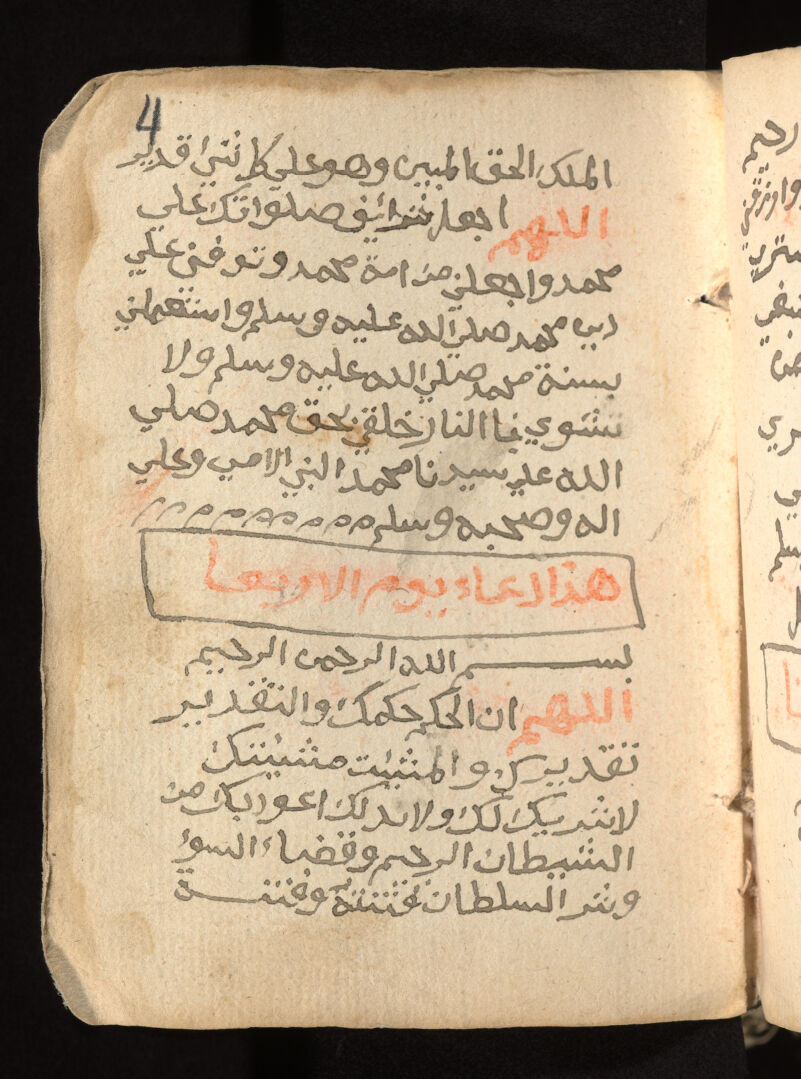 4
الملك الحق المبين وهو علي كل شيئ قدير
اللهم اجعل شرائف صلواتك علي
محمد واجعلني من امة محمد وتوفني علي
دين محمد صلي الله عليه وسلم واستعملني
بسنة محمد صلي الله عليه وسلم ولا
تشوي بنا النار خلقي بحق محمد صلي
الله علي سيدنا محمد النبي الامي وعلي
اله وصحبه وسلم
هذا دعاء يوم الاربعا
بسم الله الرحمن الرحيم
اللهم ان الحكم حكمك والتقدير
تقديرك والمشيئت مشيئتك
لاشريك لك ولاند لك اعوذ بك من
الشيطان الرجيم وقضاء السوء
وشر السلطان وفتنته وفتنـة